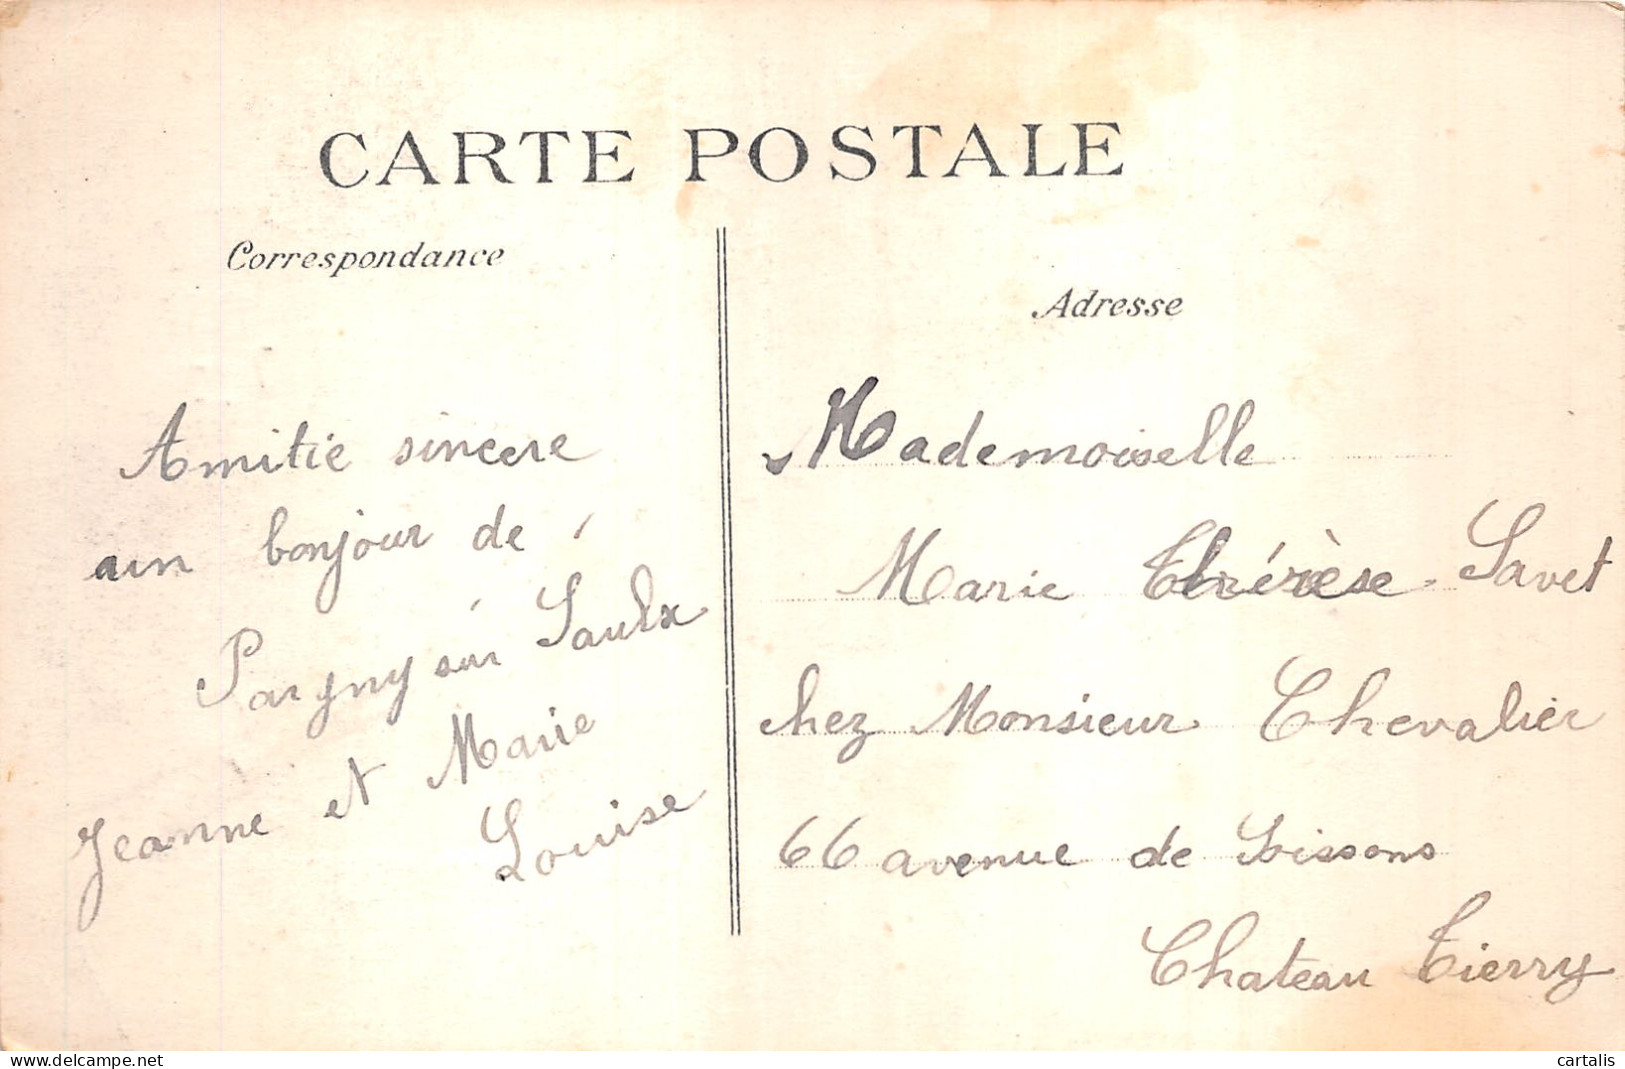 CARTE POSTALE
Correspondance
Amitié sincère
un bonjour de
Pargny sur Saulx
Jeanne et Marie
Louise
Adresse
Mademoiselle
Marie Thérèse Savet
chez Monsieur Chevalier
66 avenue de Soissons
Chateau Tierry
www.delcampe.net
cartalis